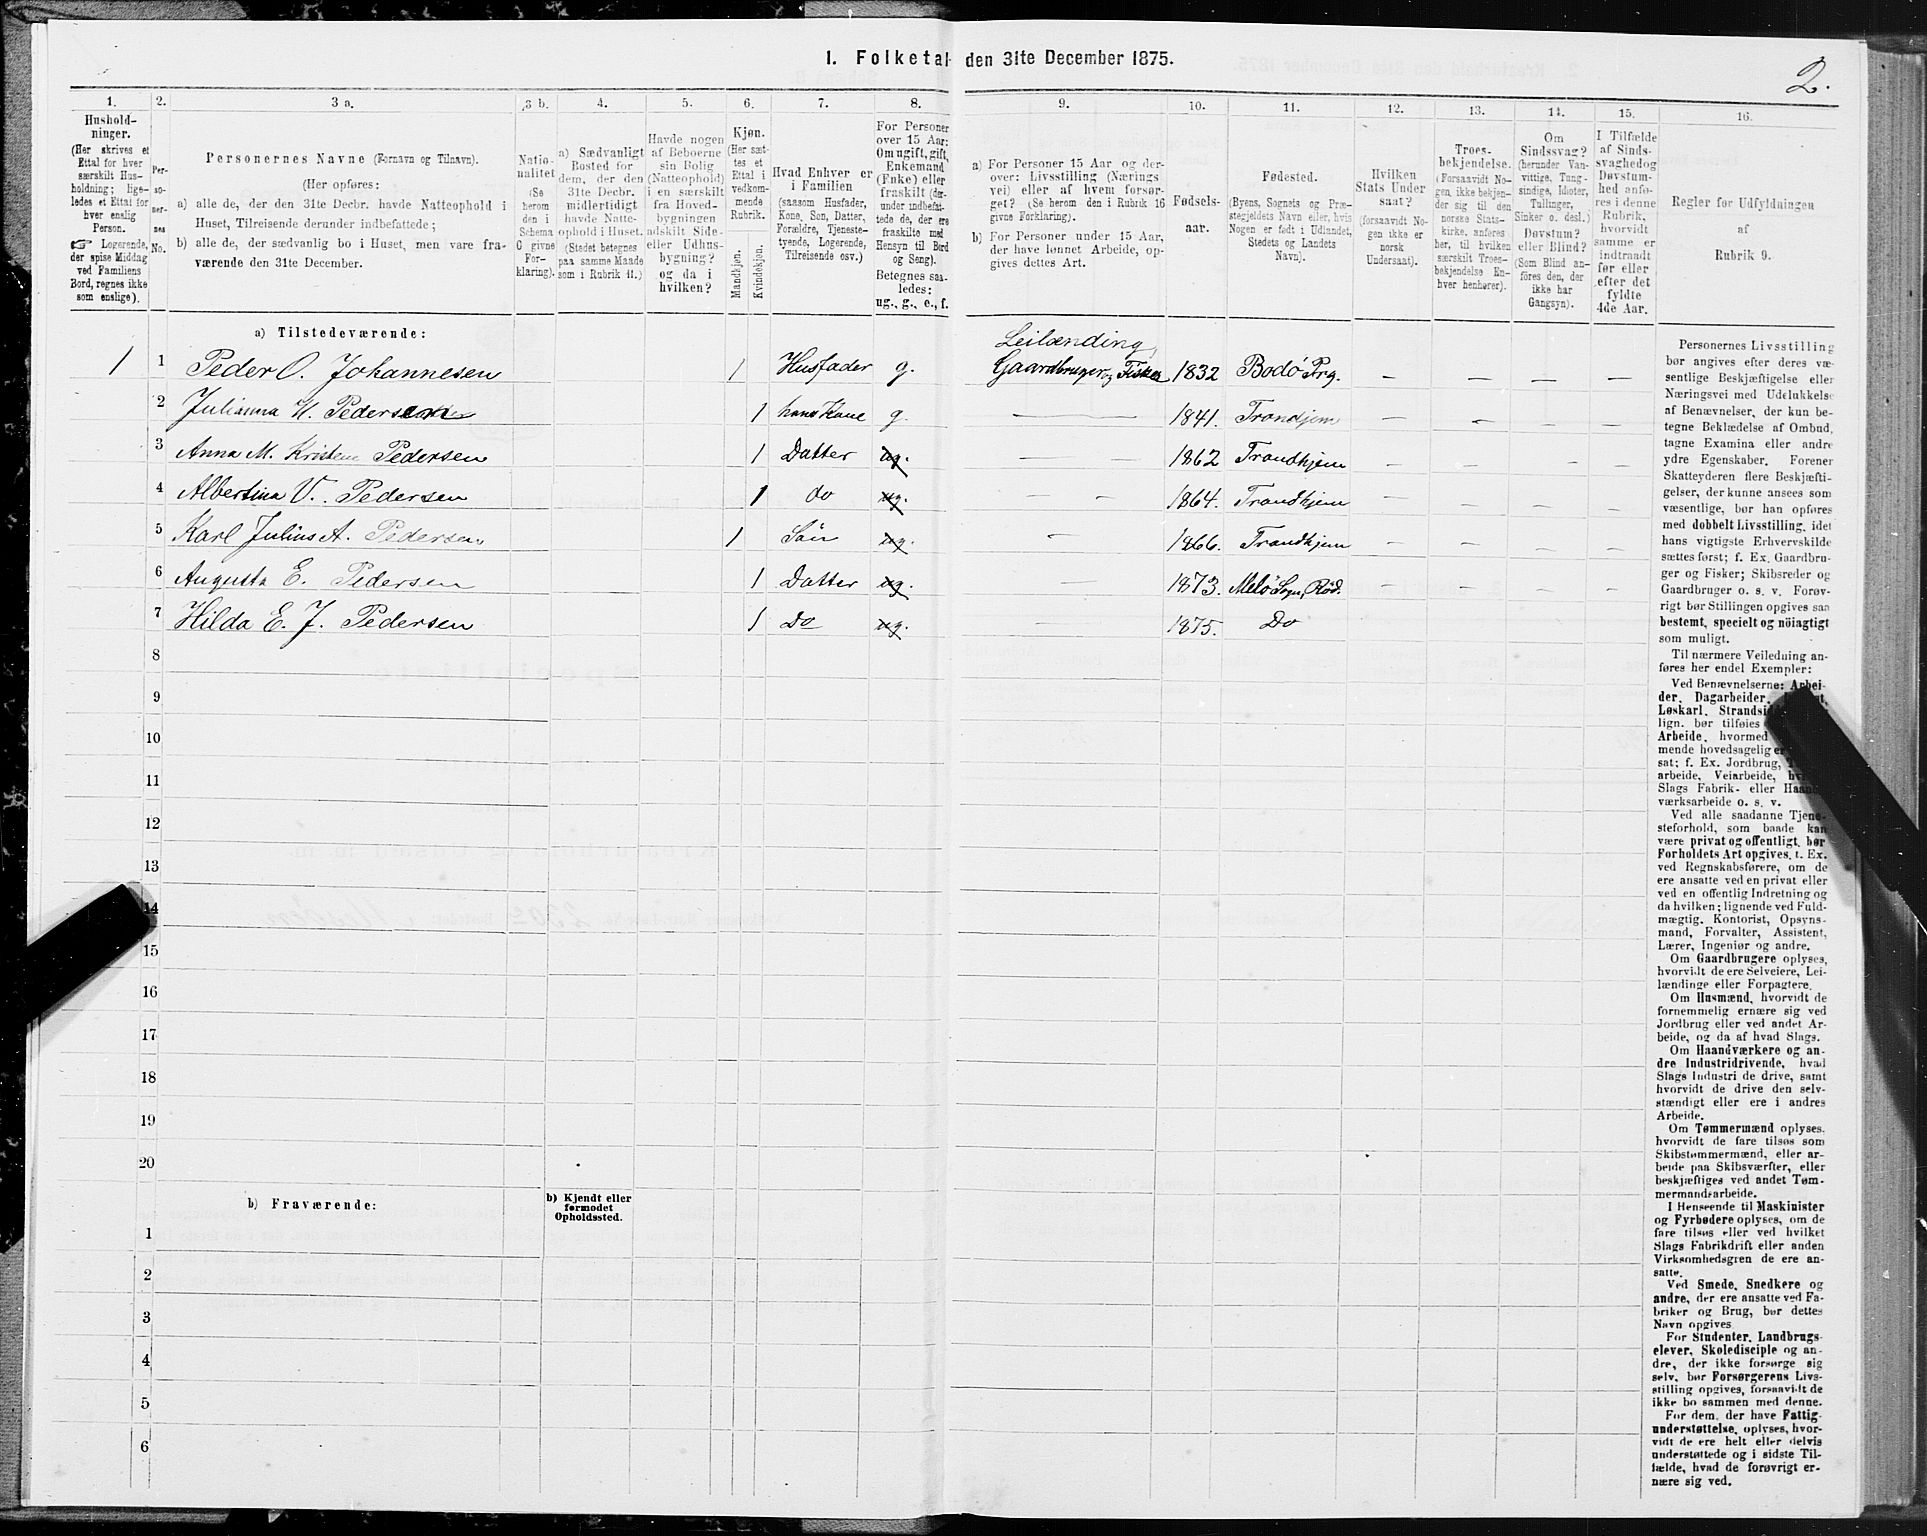 1. Folketal den 31te December 1875.
2.
1.
Hushold-
ninger.
(Her skrives et
Ettal for hver
særskilt Hus-
holdning; lige-
ledes et Ettal for
hver enslig
Person.
☞ Logerende,
der spise Middag
ved Familiens
Bord, regnes ikke
som enslige).
2.
Per-
so-
ner-
nes
No.
3 a.
Personernes Navne (Fornavn og Tilnavn).
(Her opføres:
a) alle de, der den 31te Decbr. havde Natteophold i
Huset, Tilreisende derunder indbefattede;
b) alle de, der sædvanlig bo i Huset, men vare fra-
værende den 31te December.
3 b.
Natio-
nalitet
(Se
herom
den i
Schema
C givne
For-
klaring).
4.
a) Sædvanligt
Bosted for
dem, der den
31te Decbr.
midlertidigt
havde Natte-
ophold i Huset.
(Stedet betegnes
paa samme Maade
som i Rubrik 11.)
5.
Havde nogen
af Beboerne
sin Bolig
(Natteophold)
i en særskilt
fra Hoved-
bygningen
adskilt Side-
eller Udhus-
bygning?
og da i
hvilken?
6.
Kjøn.
(Her sæt-
tes et
Ettal i
vedkom-
mende
Rubrik.
Mandkjøn.
Kvindekjøn.
7.
Hvad Enhver er
i Familien
(saasom Husfader,
Kone, Søn, Datter,
Forældre, Tjeneste-
tyende, Logerende,
Tilreisende osv.)
8.
For Personer
over 15 Aar:
Om ugift, gift,
Enkemand
(Enke) eller
fraskilt (der-
under indbefat-
tede de, der ere
fraskilte med
Hensyn til Bord
og Seng).
Betegnes saa-
ledes:
ug., g., e., f.
9.
a) For Personer 15 Aar og der-
over: Livsstilling (Nærings-
vei) eller af hvem forsør-
get? (Se herom den i Rubrik 16
givne Forklaring).
b) For Personer under 15 Aar,
der have lønnet Arbeide, op-
gives dettes Art.
10.
Fødsels-
aar.
11.
Fødested.
(Byens, Sognets og Præ-
stegjeldets Navn eller, hvis
Nogen er født i Udlandet,
Stedets og Landets
Navn).
12.
Hvilken
Stats Under
saat?
(forsaavidt No-
gen ikke er
norsk
Undersaat).
13.
Troes-
bekjendelse.
(Forsaavidt No-
gen ikke bekjen-
der sig til den
norske Stats-
kirke, anføres
her, til hvilken
særskilt Troes-
bekjendelse En-
hver henhører).
14.
Om
Sindssvag?
(herunder Van-
vittige, Tung-
sindige, Idioter,
Tullinger,
Sinker o. desl.)
Døvstum?
eller Blind?
(Som Blind an-
føres den, der
ikke har
Gangsyn).
15.
I Tilfælde
af Sinds-
svaghed og
Døvstum-
hed anfø-
res i denne
Rubrik,
hvorvidt
samme er
indtraadt
før eller
efter det
fyldte
4de Aar.
16.
Regler før Udfyldningen
af
Rubrik 9.
a) Tilstedeværende:
Leilænding,
1 1 Peder O. Johannesen 1 Husfader g. Gaardbruger og Fisker 1832 Bodö Prg. — — — —
2 Julianna M. Pedersen 1 hans Kone g. — 1841. Trondhjem — — — —
3 Anna M. Kristene Pedersen 1 Datter ug. — 1862 Trondhjem — — — —
4 Albertina V. Pedersen 1 do ug. — — 1864. Trondhjem — — — —
5 Karl Julius A. Pedersen 1 Sön ug. — 1866. Trondhjem — — — —
6 Augusta E. Pedersen 1 Datter ug. — 1873. Melö Sogn, Röd. — — — —
7 Hilda E. J. Pedersen 1 Do ug. — 1875. Do
8
9
10
11
12
13
14
15
16
17
18
19
20
b) Fraværende:
b) Kjendt eller
formodet
Opholdssted.
1
2
3
4
5
6
Personernes Livsstilling
bør angives efter deres væ-
sentlige Beskjæftigelse eller
Næringsvei med Udelukkelse
af Benævnelser, der kun be-
tegne Beklædelse af Ombud,
tagne Examina eller andre
ydre Egenskaber. Forener
Skatteyderen flere Beskjæfti-
gelser, der kunne ansees som
væsentlige, bør han opføres
med dobbelt Livsstilling, idet
hans vigtigste Erhvervskilde
sættes først; f. Ex. Gaardbru-
ger og Fisker; Skibsreder og
Gaardbruger o. s. v. Forøv-
rigt bør Stillingen opgives saa
bestemt, specielt og nöiagtigt
som muligt.
Til nærmere Veiledning an-
føres her endel Exempler:
Ved Benævnelserne: Arbei-
der, Dagarbeider,
Løskarl, Strandsid
lign. bør tilføies
Arbeide, hvormed
mende hovedsagelig er
sat; f. Ex. Jordbrug,
arbeide, Veiarbeide,
Slags Fabrik- eller Haand-
værksarbeide o. s. v.
Ved alle saadanne Tjene-
steforhold, som baade kan
være privat og offentligt, bør
Forholdets Art opgives, t. Ex.
ved Regnskabsførere, om de
ere ansatte ved en privat eller
ved en offentlig Indretning og
da hvilken; lignende ved Fuld-
mægtig, Kontorist, Opsyns-
mand, Forvalter, Assistent,
Lærer, Ingeniør og andre.
Om Gaardbrugere oplyses,
hvorvidt de ere Selveiere, Lei-
lændinge eller Forpagtere.
Om Husmænd, hvorvidt de
fornemmelig ernære sig ved
Jordbrug eller ved andet Ar-
beide, og da af hvad Slags.
Om Haandværkere og an-
dre Industridrivende, hvad
Slags Industri de drive, samt
hvorvidt de drive den selv-
stændigt eller ere i andres
Arbeide.
Om Tømmermænd oplyses,
hvorvidt de fare tilsøs som
Skibstømmermænd, eller ar-
beide paa Skibsværfter, eller
beskjæftiges ved andet Tøm-
mermandsarbeide.
I Henseende til Maskinister
og Fyrbødere oplyses, om de
fare tilsøs eller ved hvilket
Slags Fabrikdrift eller anden
Virksomhedsgren de ere an-
satte.
Ved Smede, Snedkere og
andre, der ere ansatte ved Fa-
briker og Brug, bør dettes
Navn opgives.
For Studenter, Landbrugs-
elever, Skoledisciple og an-
dre, der ikke forsørge sig
selv, bør Forsørgerens Livs-
stilling opgives, forsaavidt de
ikke bo sammen med denne.
For dem, der have Fattig-
understøttelse, oplyses, hvor-
vidt de ere helt eller delvis
understøttede og i sidste Til-
fælde, hvad de forøvrigt er-
nære sig ved.